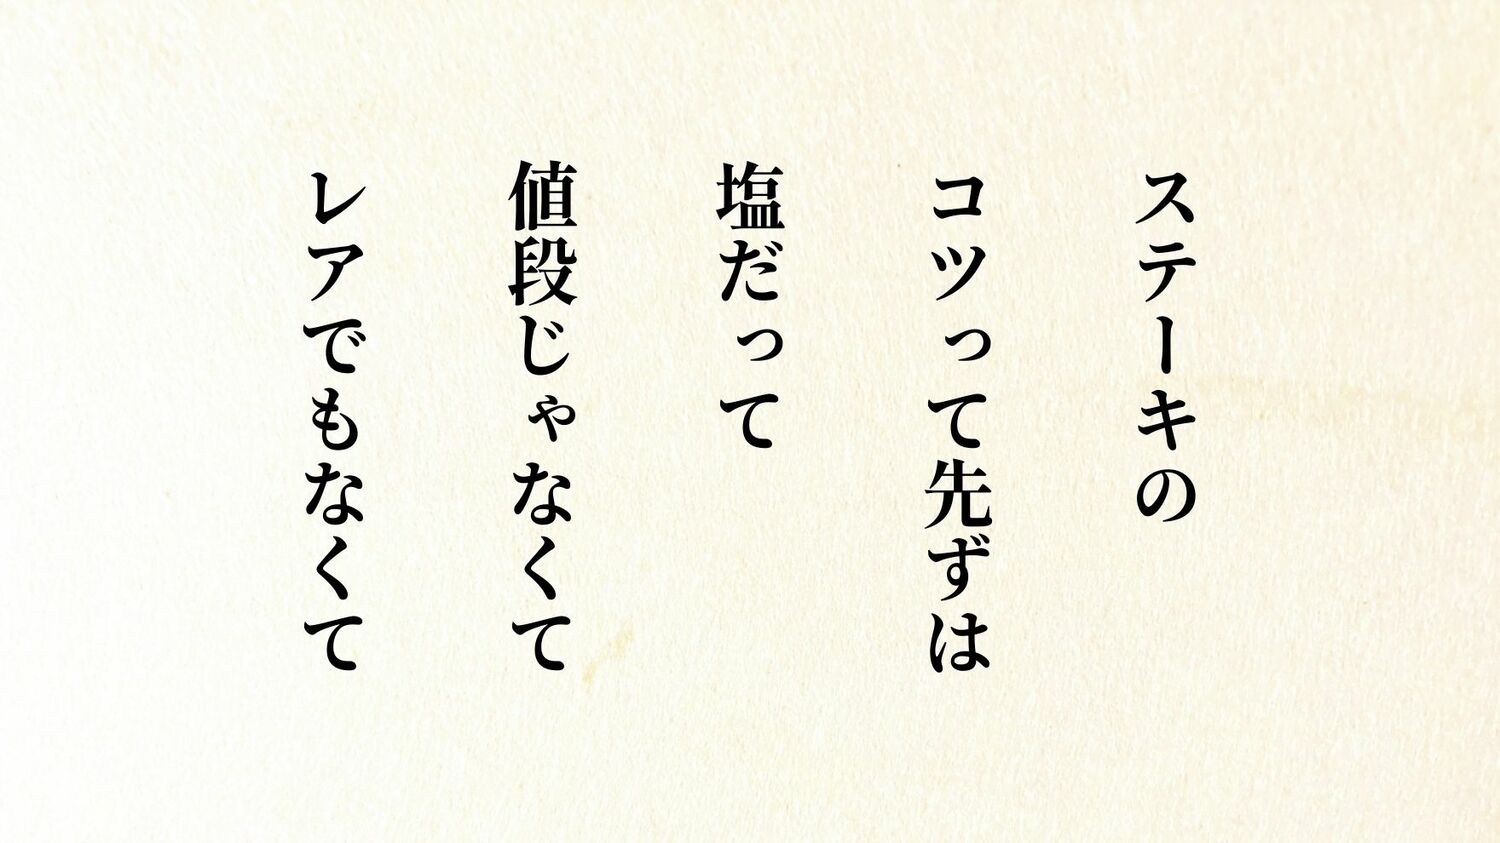 ステーキの
コツって先ずは
塩だって
値段じゃなくて
レアでもなくて